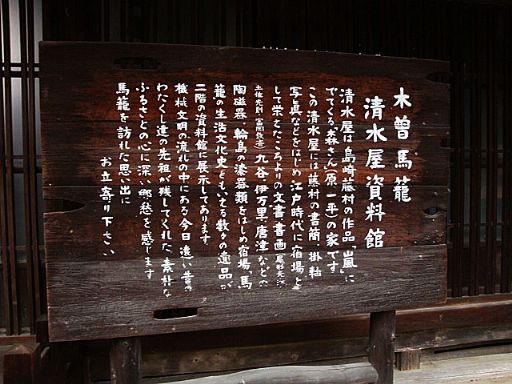 木曽馬籠
清水屋資料館
清水屋は島崎藤村の作品「嵐」に
でてくる森さん(原一平)の家です
この清水屋には藤村の書簡、掛軸
写真などをはじめ江戸時代に宿場と
して栄えたころよりの文書、書画
九谷、伊万里、唐津などの
陶磁器、輪島の漆器類をはじめ宿場、馬
籠の生活文化史ともいえる数々の遺品が
二階の資料館に展示してあります
機械文明の流れの中にある今日遠い昔の
わたくし達の先祖が残してくれた、素朴な
ふるさとの心に深い郷愁を感じます
馬籠を訪れた思い出に
お立寄り下さい